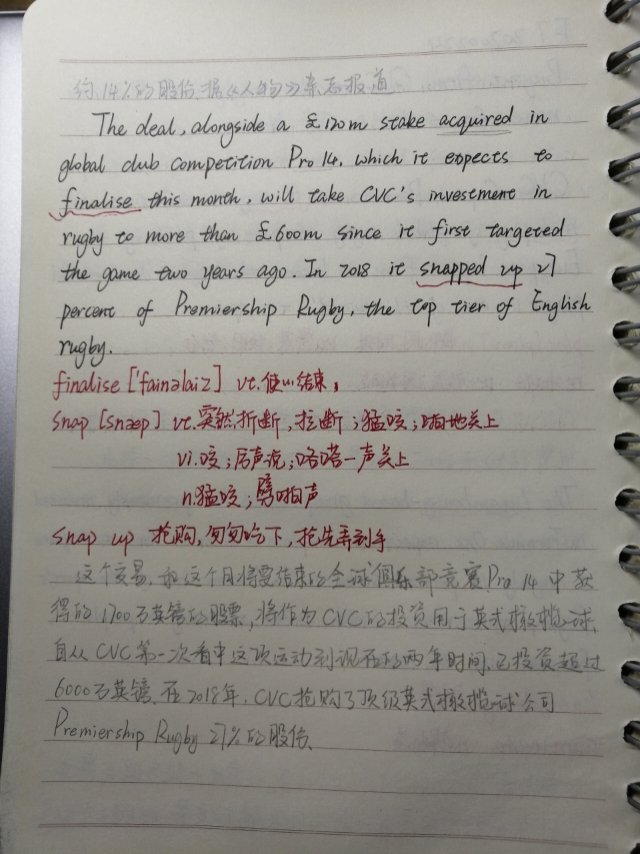 约14%的股份,据《人物》杂志报道
The deal, alongside a £120m stake acquired in
global club competition Pro 14, which it expects to
finalise this month, will take CVC's investment in
rugby to more than £600m since it first targeted
the game two years ago. In 2018 it snapped up 27
percent of Premiership Rugby, the top tier of English
rugby.
finalise ['fainəlaiz] vt.使…结束;
snap [snæp] vt.突然折断,拉断;猛咬;啪地关上
vi.咬;厉声说;咯嗒一声关上
n.猛咬;劈啪声
snap up 抢购,匆匆吃下,抢先弄到手
这个交易,和这个月将要结束的全球俱乐部竞赛Pro 14中获
得的1200万英镑的股票,将作为CVC的投资用于英式橄榄球,
自从CVC第一次看中这项运动到现在的两年时间,已投资超过
6000万英镑,在2018年,CVC抢购了顶级英式橄榄球公司
Premiership Rugby 27%的股份、